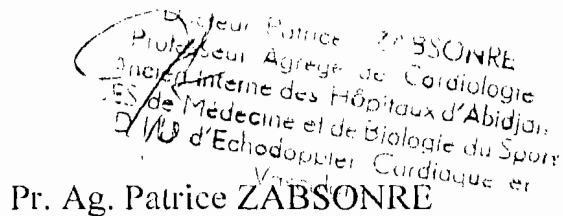 Docteur Patrice ZABSONRE
Professeur Agrégé de Cardiologie
Ancien Interne des Hôpitaux d'Abidjan
CES de Médecine et de Biologie du Sport
D.I.U d'Echodoppler Cardiaque et
Pr. Ag. Patrice ZABSONRE